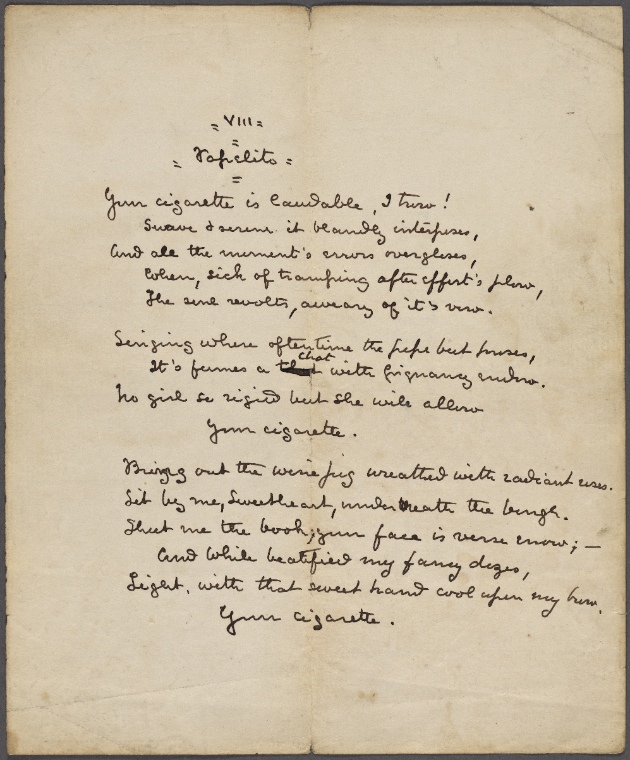 = VIII =
= Papelito =
=
Your cigarette is laudable, I trow!
Suave & serene it blandly interposes,
And all the moment's errors overgloses,
When, sick of tramping after effort's plow,
The soul revolts, aweary of it's vow.
Singing where oftentime the pipe but proses,
It's fumes a chat with piquancy endow.
No girl so rigid but she will allow
Your cigarette.
Bring out the wine jug wreathed with radiant roses.
Sit by me, Sweetheart, underneath the bough.
Shut me the book; your face is verse enow; —
And while beatified my fancy dozes,
Light, with that sweet hand cool upon my brow,
Your cigarette.